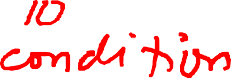 10
condition